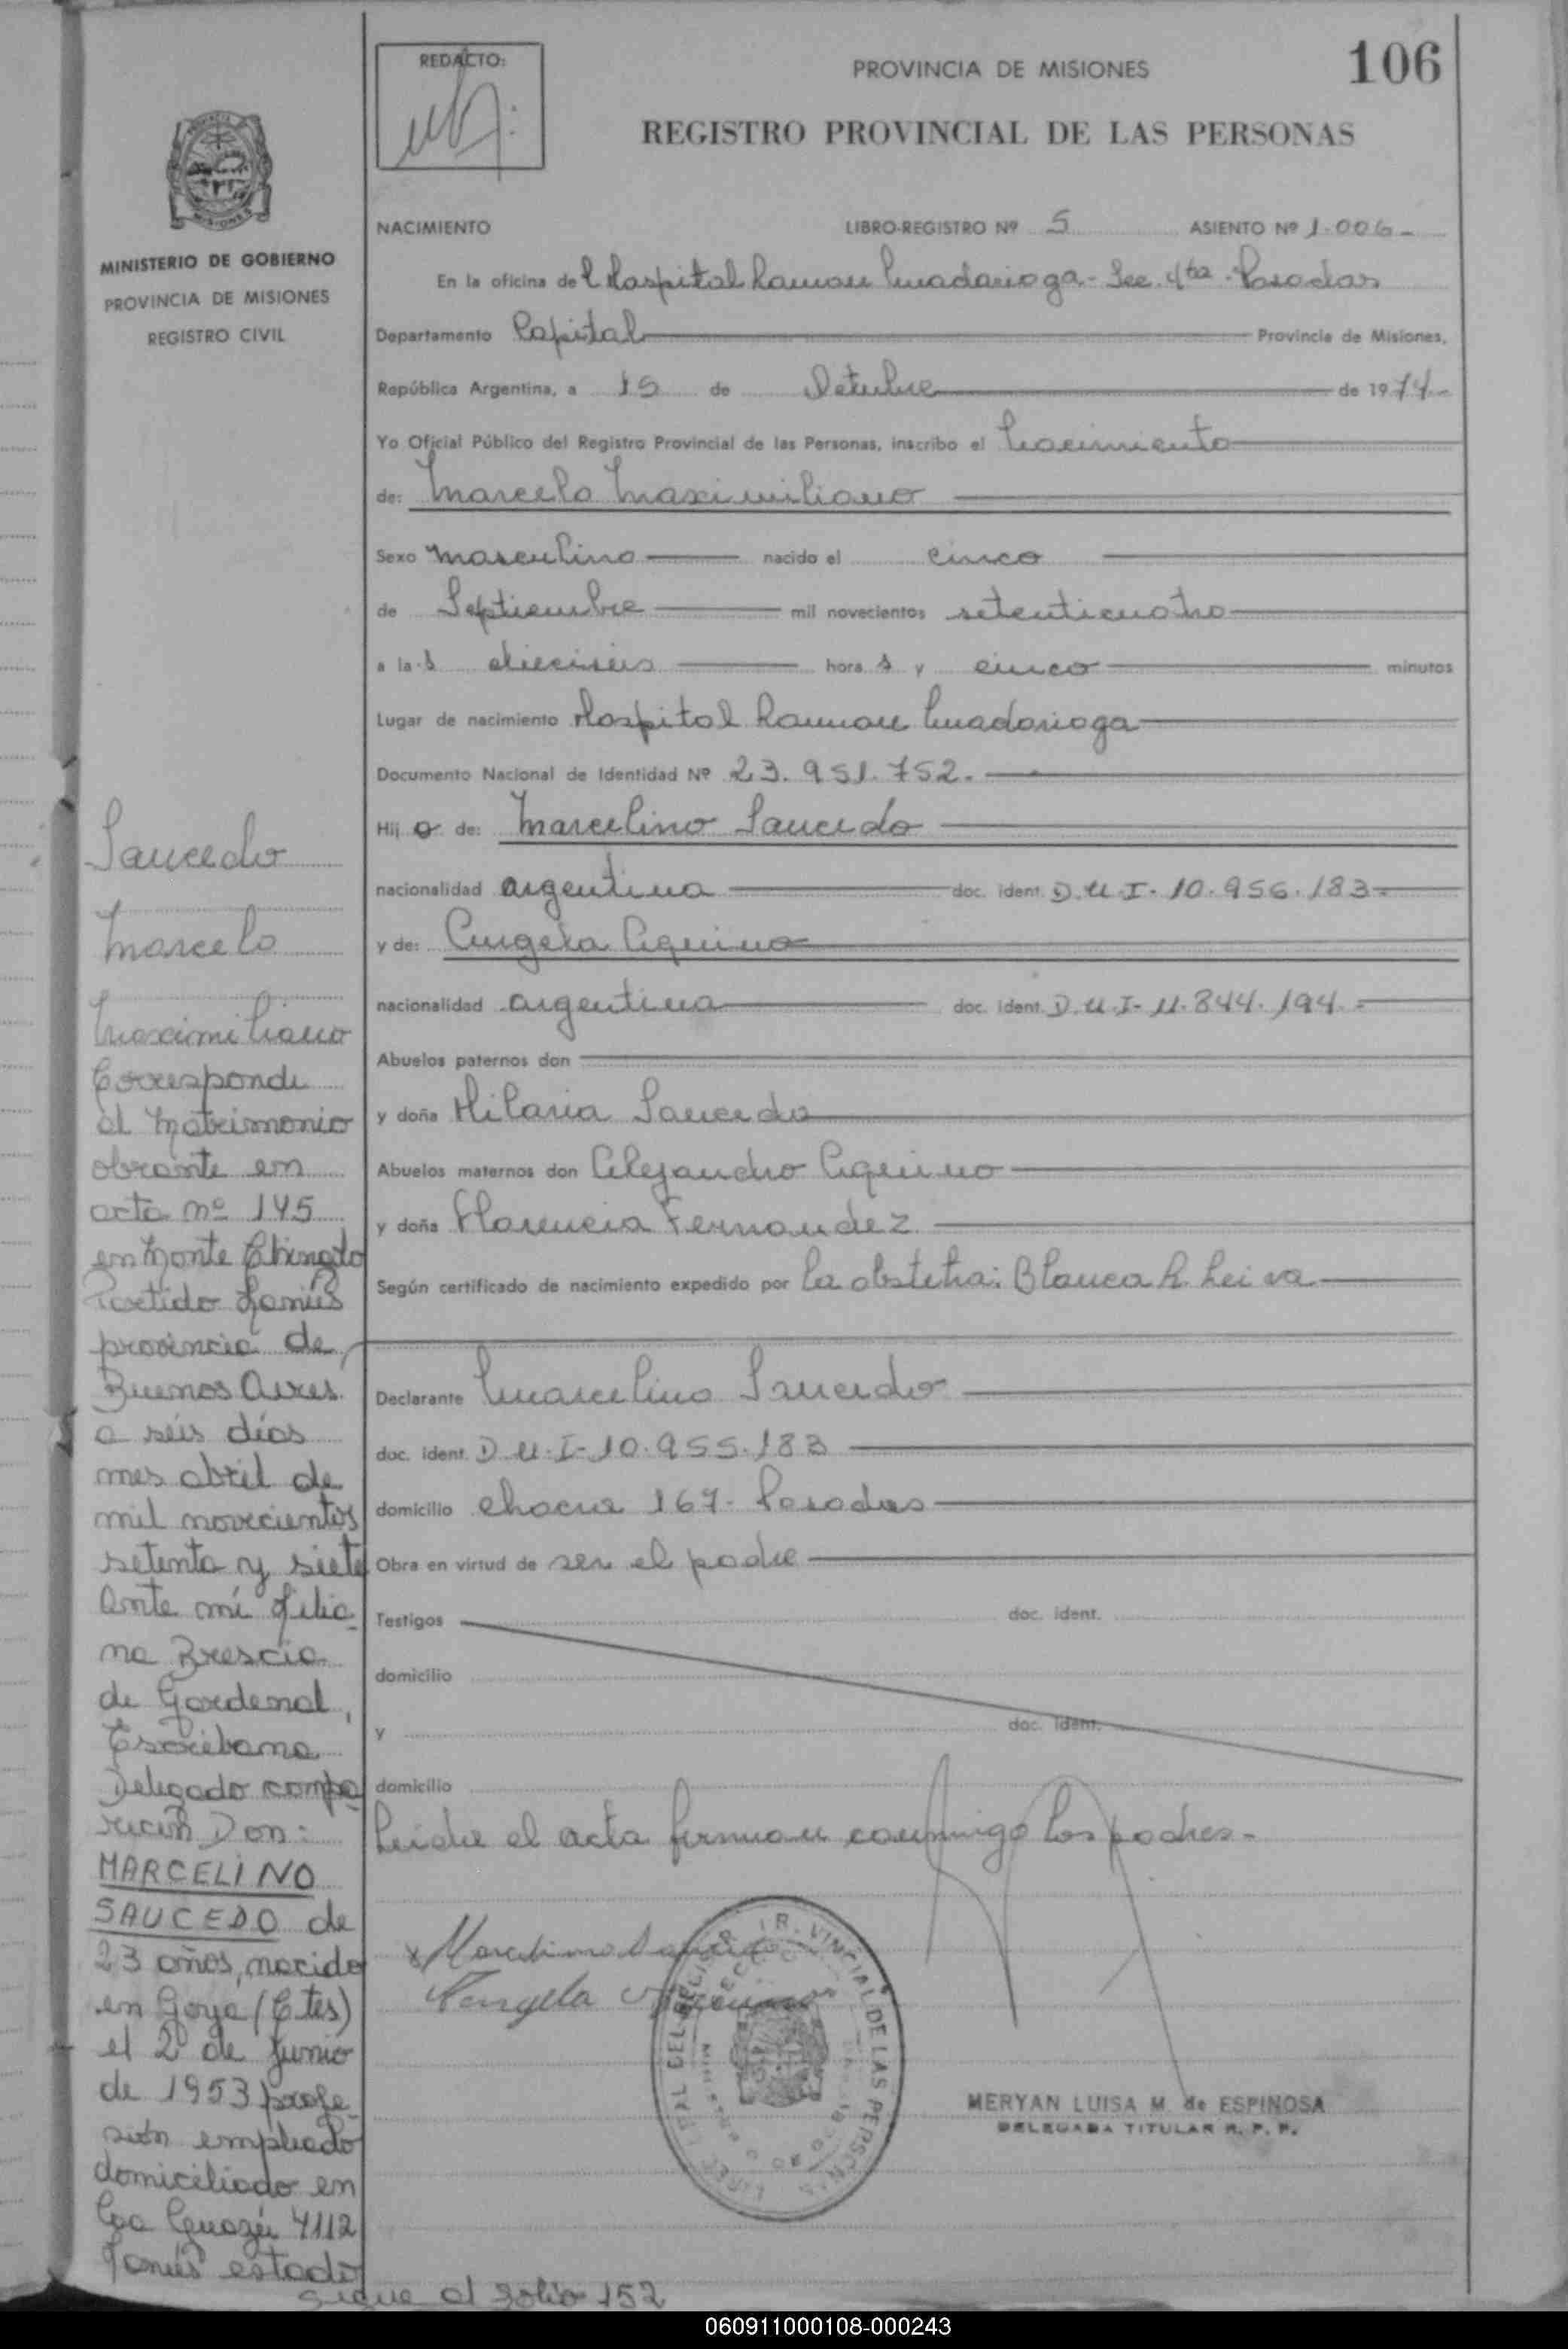 REDACTO:
PROVINCIA DE MISIONES
106
REGISTRO PROVINCIAL DE LAS PERSONAS
MINISTERIO DE GOBIERNO
PROVINCIA DE MISIONES
REGISTRO CIVIL
NACIMIENTO LIBRO-REGISTRO Nº 5 ASIENTO Nº 1.006-
En la oficina del Hospital Ramon Madariaga - Sec. 4ta - Posadas
Departamento Capital Provincia de Misiones,
República Argentina, a 15 de Octubre de 1974-
Yo Oficial Público del Registro Provincial de las Personas, inscribo el Nacimiento
de: Marcelo Maximiliano
Sexo masculino nacido el cinco
de Septiembre mil novecientos setenticuatro
a las dieciseis horas y cinco minutos
Lugar de nacimiento Hospital Ramon Madariaga
Documento Nacional de Identidad Nº 23.951.752.-
Hijo de: Marcelino Saucedo
nacionalidad argentina doc. ident. D.U.I- 10.956.183-
y de: Angela Aquino
nacionalidad argentina doc. ident. D.U.I- 11.844.194.-
Abuelos paternos don
y doña Hilaria Saucedo
Abuelos maternos don Alejandro Aquino
y doña Florencia Fernandez
Según certificado de nacimiento expedido por la obstetra: Blanca R. Leiva
Declarante Marcelino Saucedo
doc. ident. D.U.I- 10.955.183
domicilio chacra 167- Posadas
Obra en virtud de ser el padre
Testigos doc. ident.
domicilio
y doc. ident.
domicilio
Leida el acta firman conmigo los padres-
Marcelino Saucedo
Angela Aquino
MERYAN LUISA M. de ESPINOSA
DELEGADA TITULAR R. P. P.
Saucedo
Marcelo
Maximiliano
Corresponde
al Matrimonio
obrante en
acta nº 145
en Monte Chingolo
Partido Lanús
provincia de
Buenos Aires
a seis días
mes abril de
mil novecientos
setenta y siete
Ante mí Lilia-
na Brescia
de Gardenal,
Escribana
Delegado compa-
recen Don:
MARCELINO
SAUCEDO de
23 años, nacido
en Goya (Ctes)
el 2 de Junio
de 1953 profe-
sión empleado
domiciliado en
Caa Guazú 4112
Lanús estado
sigue al folio 152
060911000108-000243